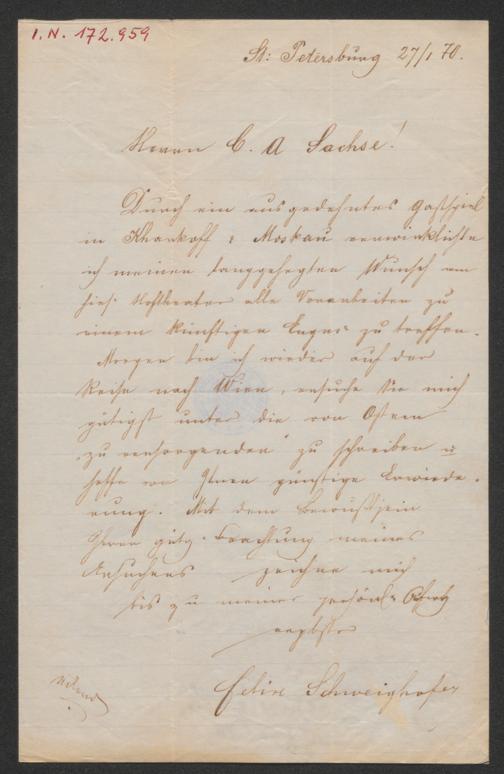 I.N. 172.959
St: Petersburg 27/1 70.
Herrn C. A Sachse!
Durch ein ausgedehntes Gastspiel
in Kharkoff & Moskau verwirklichte
ich meinen langgehegten Wunsch am
hies: Hoftheater alle Vorarbeiten zu
einem künftigen Engag: zu treffen.
Morgen bin ich wieder auf der
Reise nach Wien, ersuche Sie mich
gütigst unter die von Ostern
"zu versorgenden" zu schreiben u
hoffe von Ihnen günstige Erwiede-
rung. Mit dem Bewußtsein
Ihrer gütg. Beachtung meines
Ansuchens zeichne mich
bis zu meiner persönl:
Felix Schweighofer